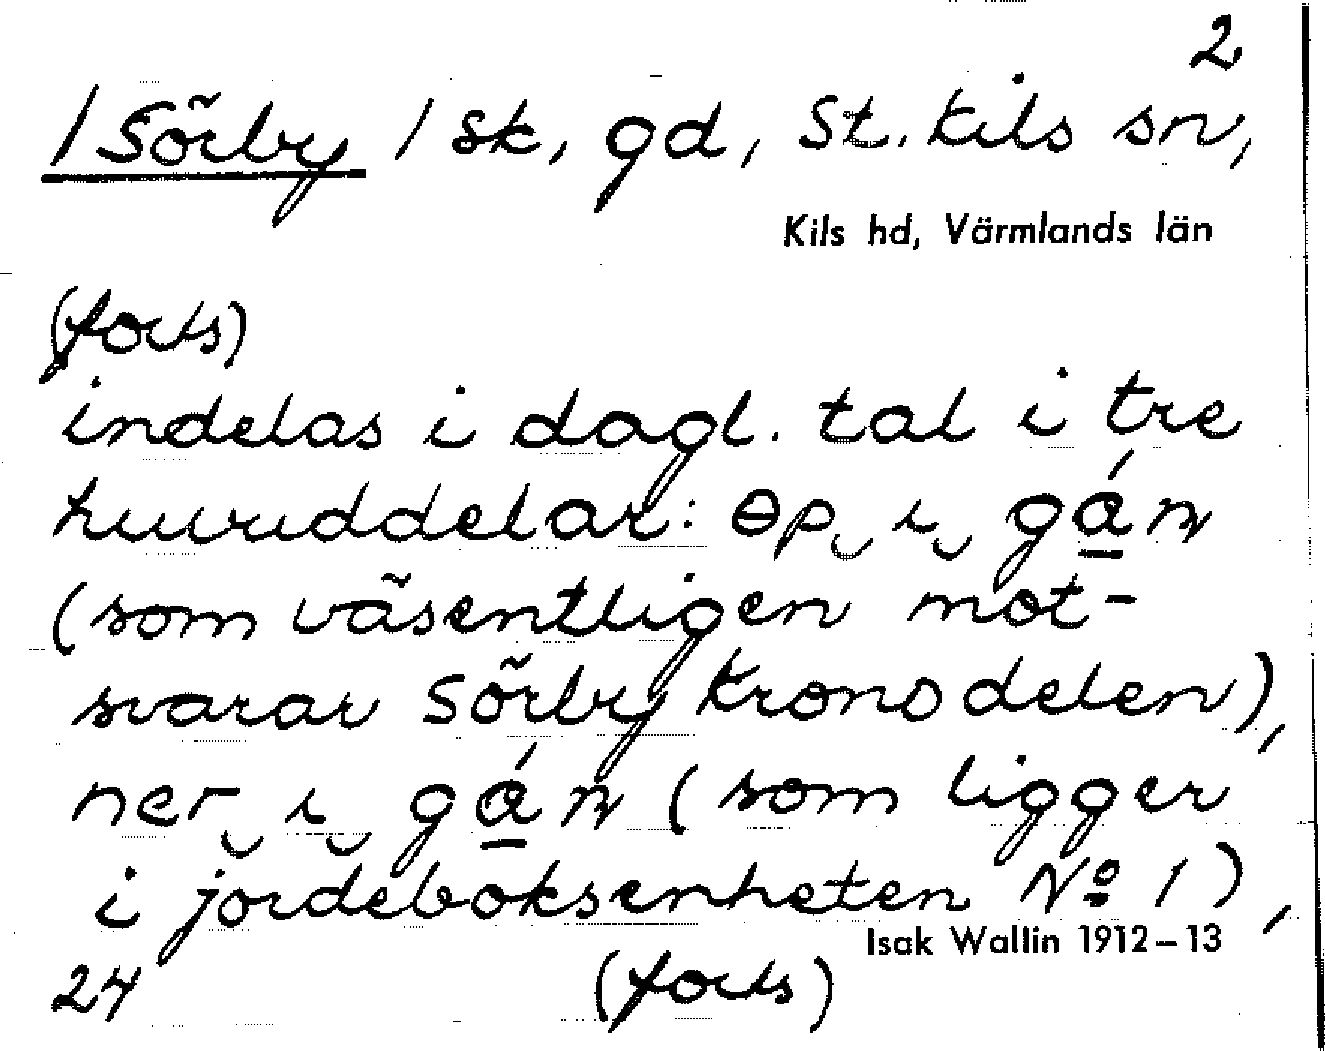 2
/Sörby / sk, gd, St. Kils sn,
Kils hd, Värmlands län
(forts)
indelas i dagl. tal i tre
huvuddelar: ɵp‿ɩ‿gá̱n
(som väsentligen mot-
svarar Sörby Kronodelen),
ner‿ɩ‿gá̱n (som ligger
i jordeboksenheten No 1),
Isak Wallin 1912–13
24 (forts)